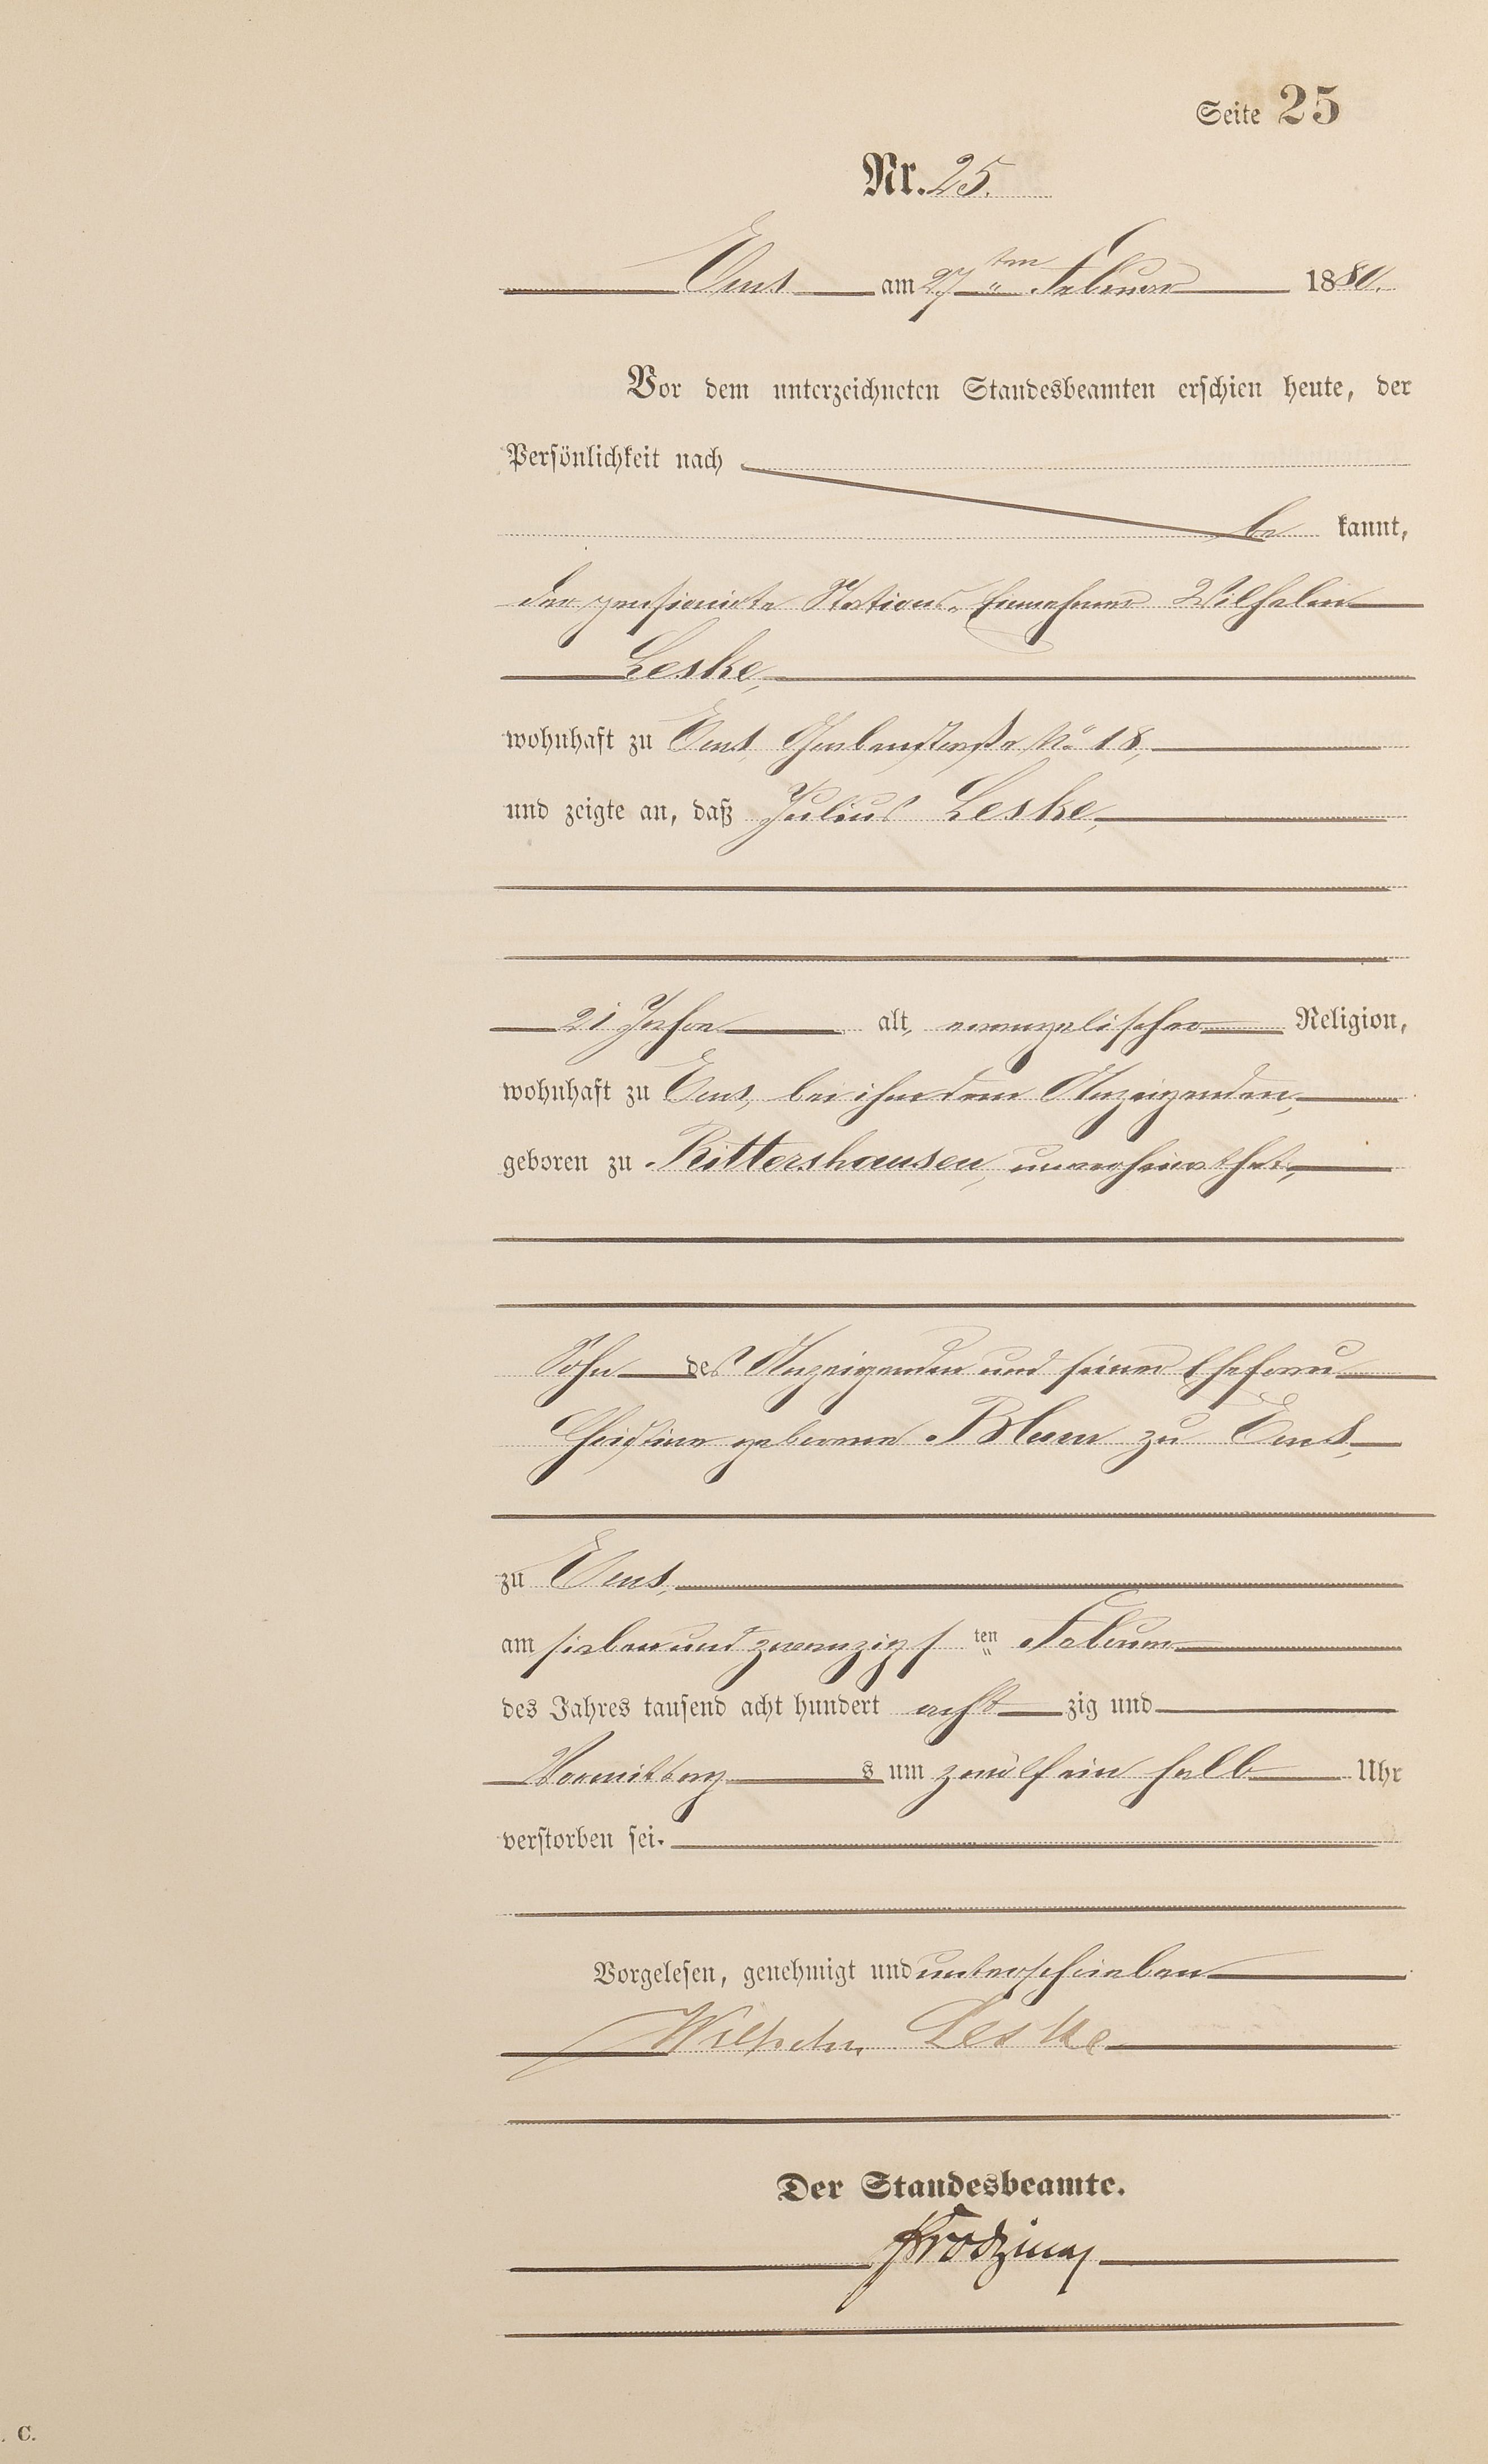 Seite 25
Nr. 25.
Ems am 27ten Februar 1880.
Vor dem unterzeichneten Standesbeamten erschien heute, der
Persönlichkeit nach
be kannt,
der pensionirte Stations-Einnehmer Wilhelm
Leske,
wohnhaft zu Ems, No 18,
und zeigte an, daß Julius Leske,
21 Jahre alt, evangelischer Religion,
wohnhaft zu Ems, bei ihm dem Anzeigenden,
geboren zu Rittershausen, unverheirathet,
Sohn des Anzeigenden und seiner Ehefrau
geborene Blum zu Ems,
zu Ems,
am siebenundzwanzigsten Februar
des Jahres tausend acht hundert acht zig und
Vormittags um zwölf ein halb Uhr
verstorben sei.
Vorgelesen, genehmigt und unterschrieben
Wilhelm Leske
Der Standesbeamte.
. C.